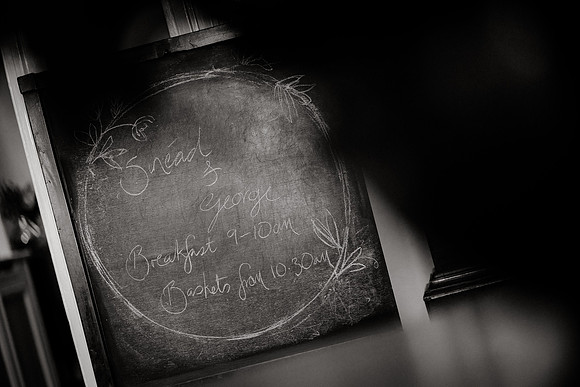 Sinéad
&
George
Breakfast 9-10am
Baskets from 10.30am